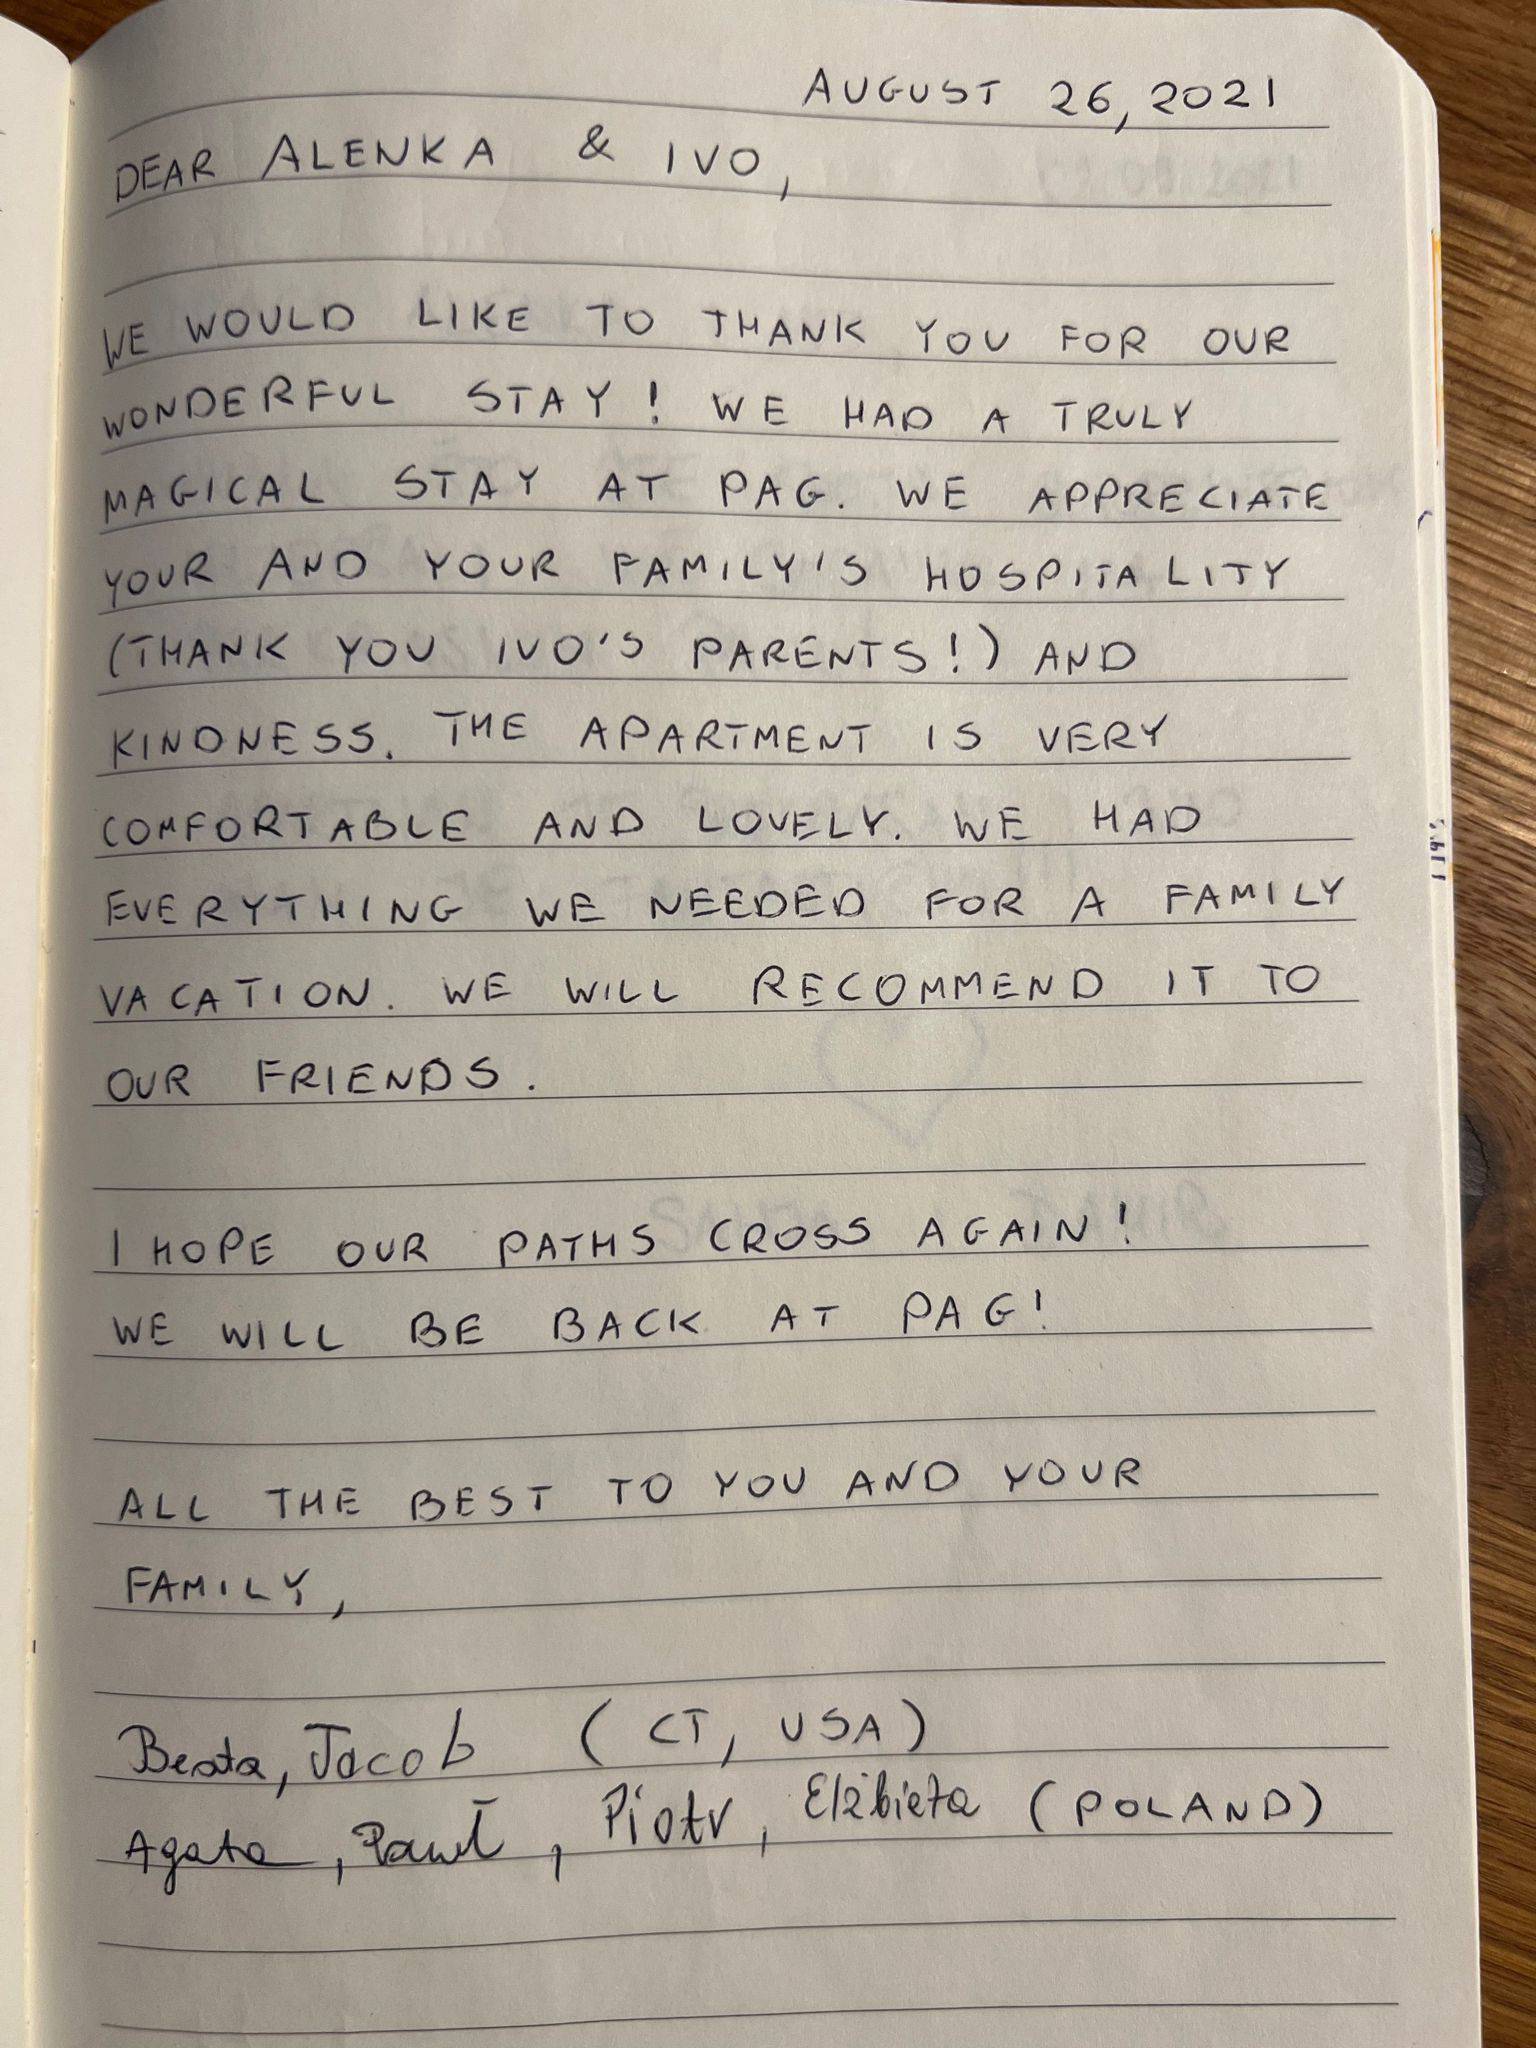 AUGUST 26, 2021
DEAR ALENKA & IVO,
WE WOULD LIKE TO THANK YOU FOR OUR
WONDERFUL STAY! WE HAD A TRULY
MAGICAL STAY AT PAG. WE APPRECIATE
YOUR AND YOUR FAMILY'S HOSPITALITY
(THANK YOU IVO'S PARENTS!) AND
KINDNESS. THE APARTMENT IS VERY
COMFORTABLE AND LOVELY. WE HAD
EVERYTHING WE NEEDED FOR A FAMILY
VACATION. WE WILL RECOMMEND IT TO
OUR FRIENDS.
I HOPE OUR PATHS CROSS AGAIN!
WE WILL BE BACK AT PAG!
ALL THE BEST TO YOU AND YOUR
FAMILY,
Beata, Jacob (CT, USA)
Agata, Piotr, Elżbieta (POLAND)